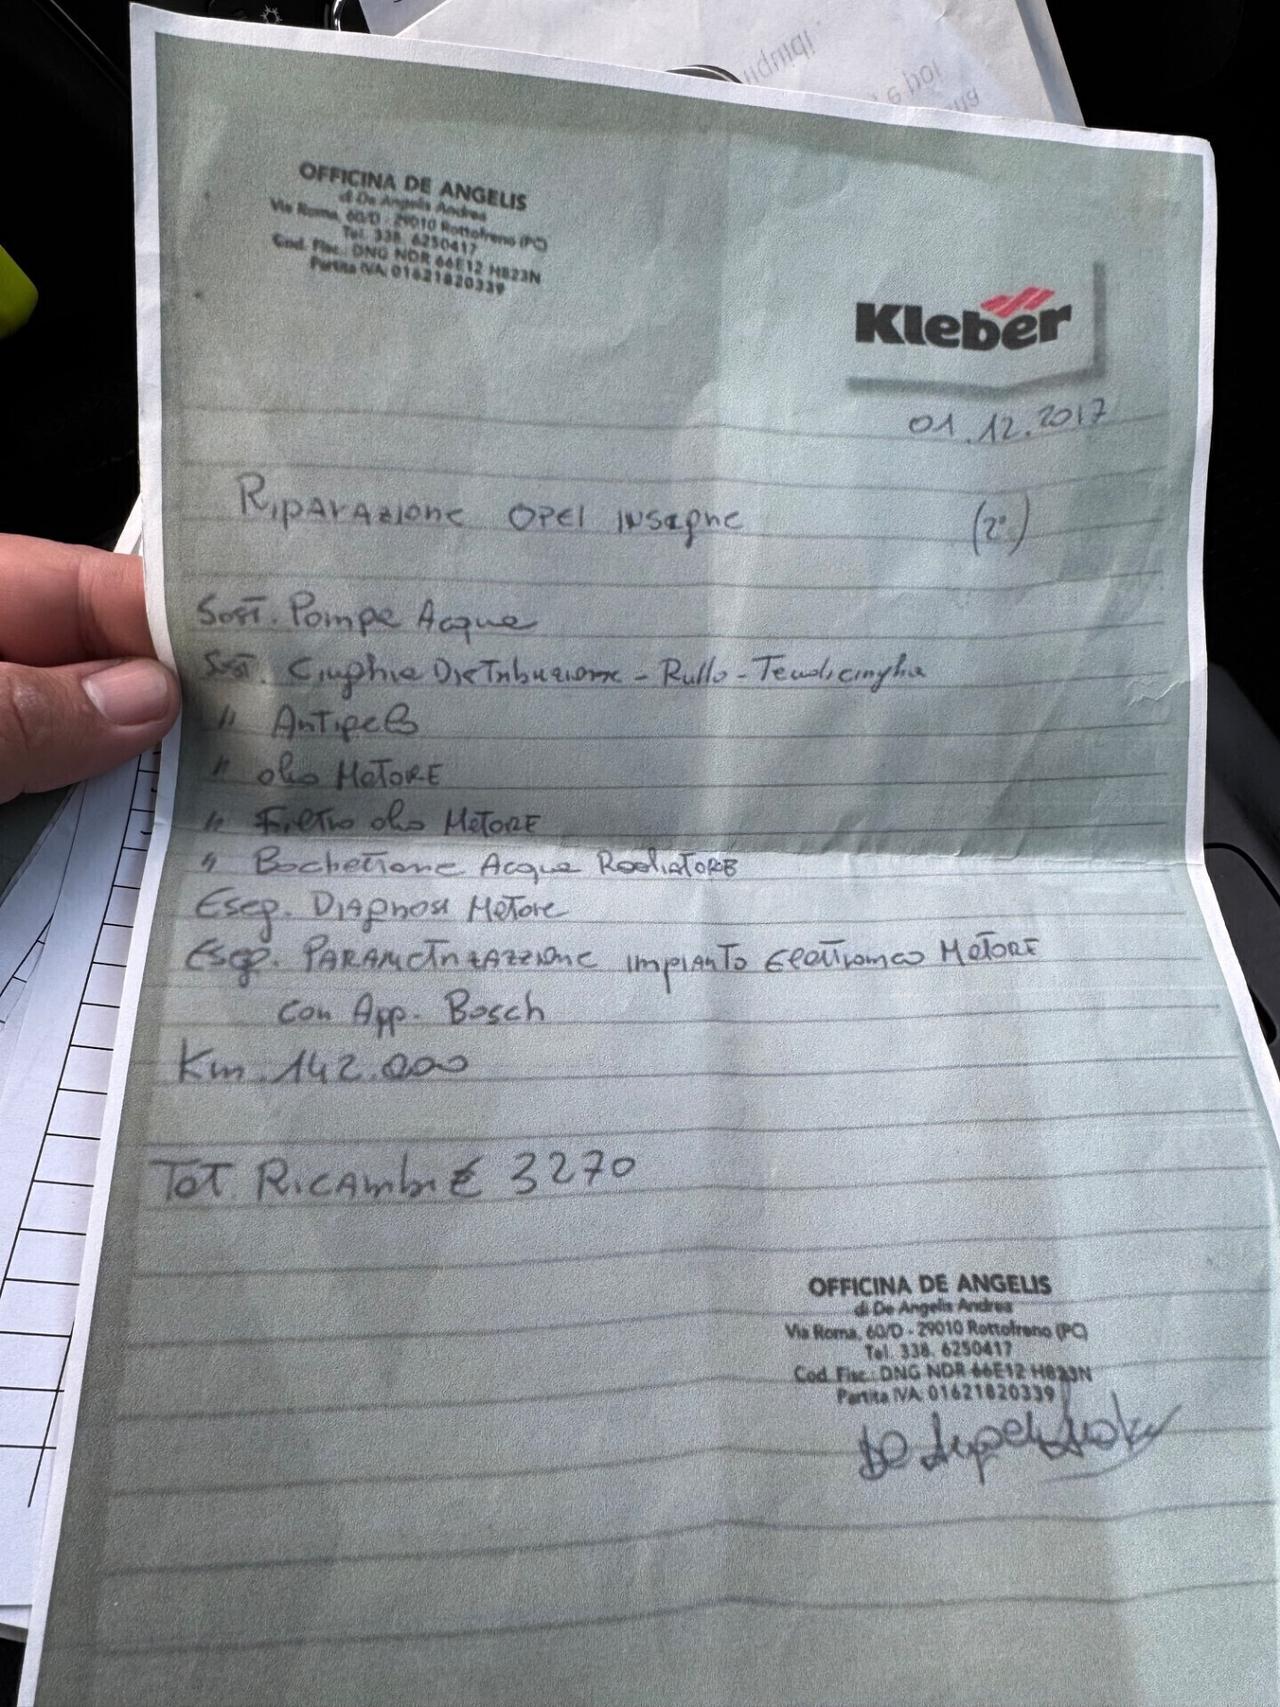 OFFICINA DE ANGELIS
di De Angelis Andrea
Via Roma, 60/D - 29010 Rottofreno (PC)
Tel. 338. 6250417
Cod. Fisc.: DNG NDR 66E12 H823N
Partita IVA 01621820339
Kleber
01.12.2017
Riparazione OPEL INSIGNE (2°)
Sost. Pompe Acque
Sost. Cinghia Distribuzione - Rullo - Tendicinghia
" Antigelo
" olio MOTORE
" Filtro olio MOTORE
" Bochettone Acque RadiatorE
Eseg. Diagnosi Motore
Eseg. PARAMETRIZAZZIONE impianto Elettronico MOTORE
con App. Bosch
Km. 142.000
Tot. Ricambi € 3270
OFFICINA DE ANGELIS
di De Angelis Andrea
Via Roma, 60/D - 29010 Rottofreno (PC)
Tel. 338. 6250417
Cod. Fisc.: DNG NDR 66E12 H823N
Partita IVA 01621820339
De Angelis